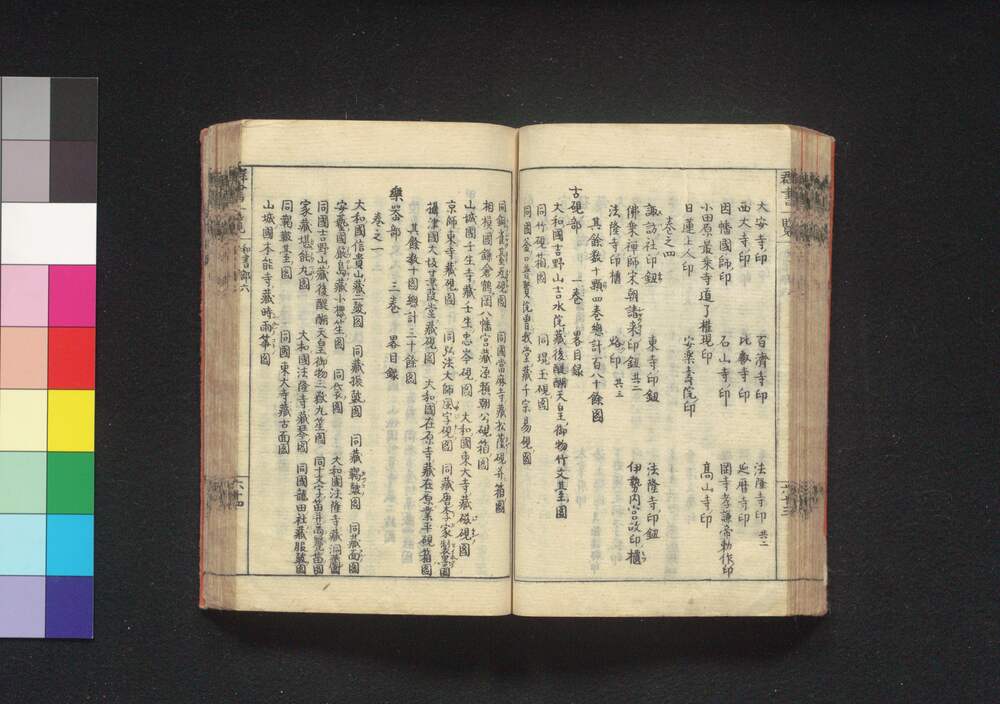 群書一覧
大安寺印 百濟寺印 法隆寺印 共二
西大寺印 比叡寺印 延暦寺印
因幡國師印 石山寺印 岡寺孝謙帝勅作印
小田原最乗寺道了權現印 高山寺印
日蓮上人印 安樂壽院印
卷之四
諏訪社印鈕 東寺印鈕 法隆寺印鈕
佛乗禅師宋朝請来印鈕 共二 伊勢内宮政印櫃
法隆寺印櫃 烙印 共三
其餘数十顆四卷總計百八十餘圖
六十三
古硯部 一卷 畧目録
大和國吉野山吉水院藏後醍醐天皇御物竹文其圭圖
同竹硯箱圖 同琨玉硯圖
同國釜口普賢院曽我堂藏千宗易硯圖
群書一覧 和書部六
同銅雀臺瓦硯圖 同國當麻寺藏松蔭硯并箱圖
相模國鎌倉鶴岡八幡宮藏源頼朝公硯箱圖
山城國壬生寺藏壬生忠岑硯圖 大和國東大寺藏磁硯圖
京師東寺藏硯圖 同弘法大師風字硯圖 同藏唐李家製墨圖
攝津國大坂蒹葭堂藏硯圖 大和國在原寺藏在原業平硯箱圖
其餘数十圖總計三十餘圖
樂器部 三卷 畧目録
卷之一
大和國信貴山藏一皷圖 同藏振皷圖 同藏羯皷圖 同藏面圖
安藝國嚴島藏小櫻笙圖 同衣圖 大和國法隆寺藏洞簫圖
同國吉野山藏後醍醐天皇御物三嶽丸笙圖
家藏堪能丸圖 大和國法隆寺藏琴圖 同國龍田社藏服皷圖
同羯皷其圭圖 同國東大寺藏古面圖
山城國本能寺藏時雨箏圖
六十四